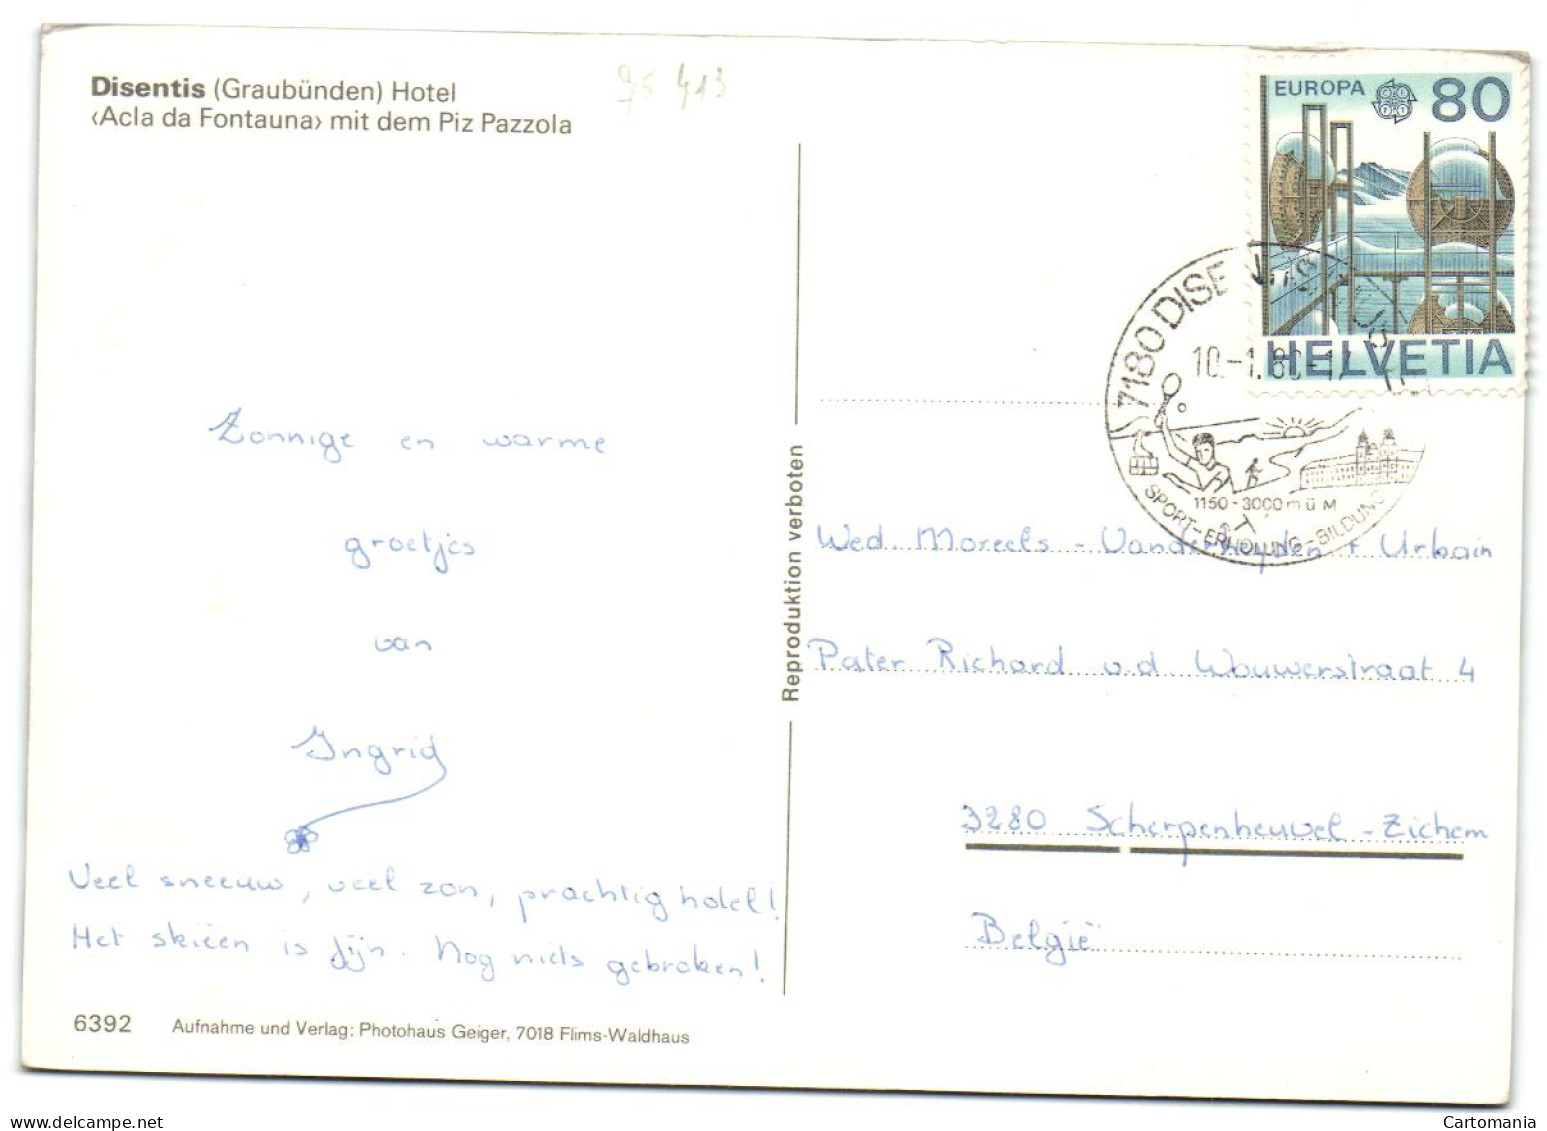 Disentis (Graubünden) Hotel
‹Acla da Fontauna› mit dem Piz Pazzola
Zonnige en warme
groetjes
van
Ingrid
Veel sneeuw, veel zon, prachtig hotel!
Het skiëen is fijn. Nog niets gebroken!
6392 Aufnahme und Verlag: Photohaus Geiger, 7018 Flims-Waldhaus
Reproduktion verboten
EUROPA 80
HELVETIA
7180 DISE
10.-1.80-17
1150-3000 m ü M
SPORT-ERHOLUNG-BILDUNG
Wed. Moreels - Vanderheyden + Urbain
Pater Richard v.d Wouwerstraat 4
3280 Scherpenheuvel - Zichem
België
www.delcampe.net
Cartomania